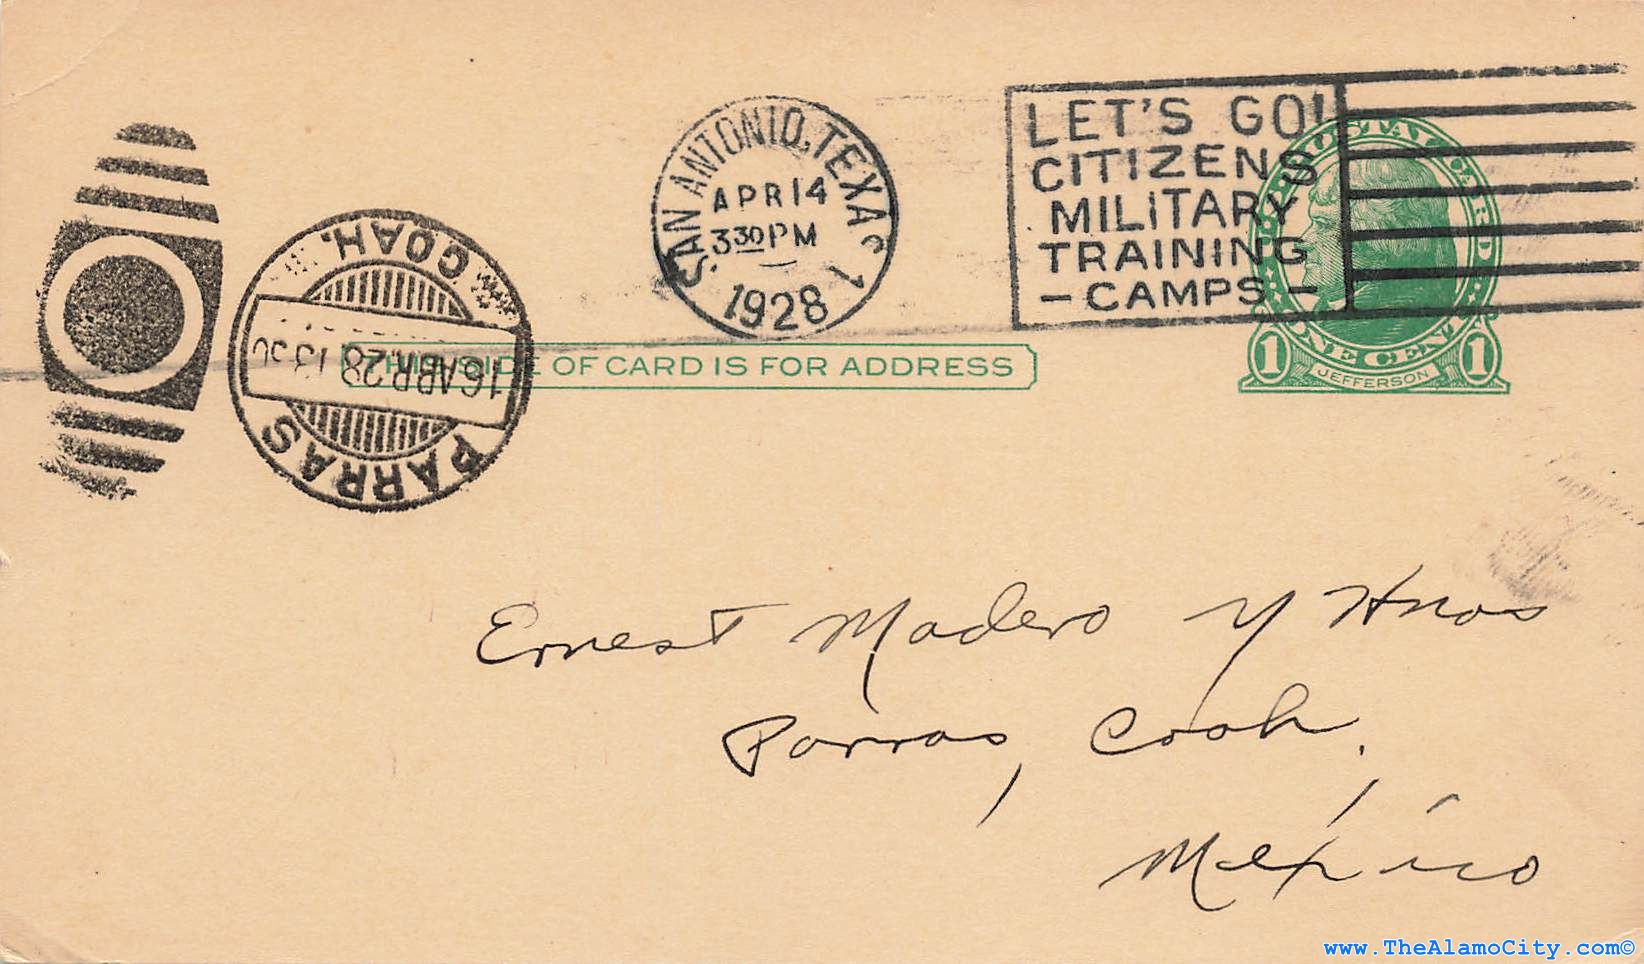 SAN ANTONIO, TEXAS
APR 14
3 30 PM
1928
1
LET'S GO!
CITIZENS
MILITARY
TRAINING
- CAMPS -
U·S·POSTAL CARD
ONE CENT
1 JEFFERSON 1
THIS SIDE OF CARD IS FOR ADDRESS
PARRAS
16 ABR. 28 13 30
COAH.
Ernest Madero y Hnos
Parras, Coah.
México
www.TheAlamoCity.com©